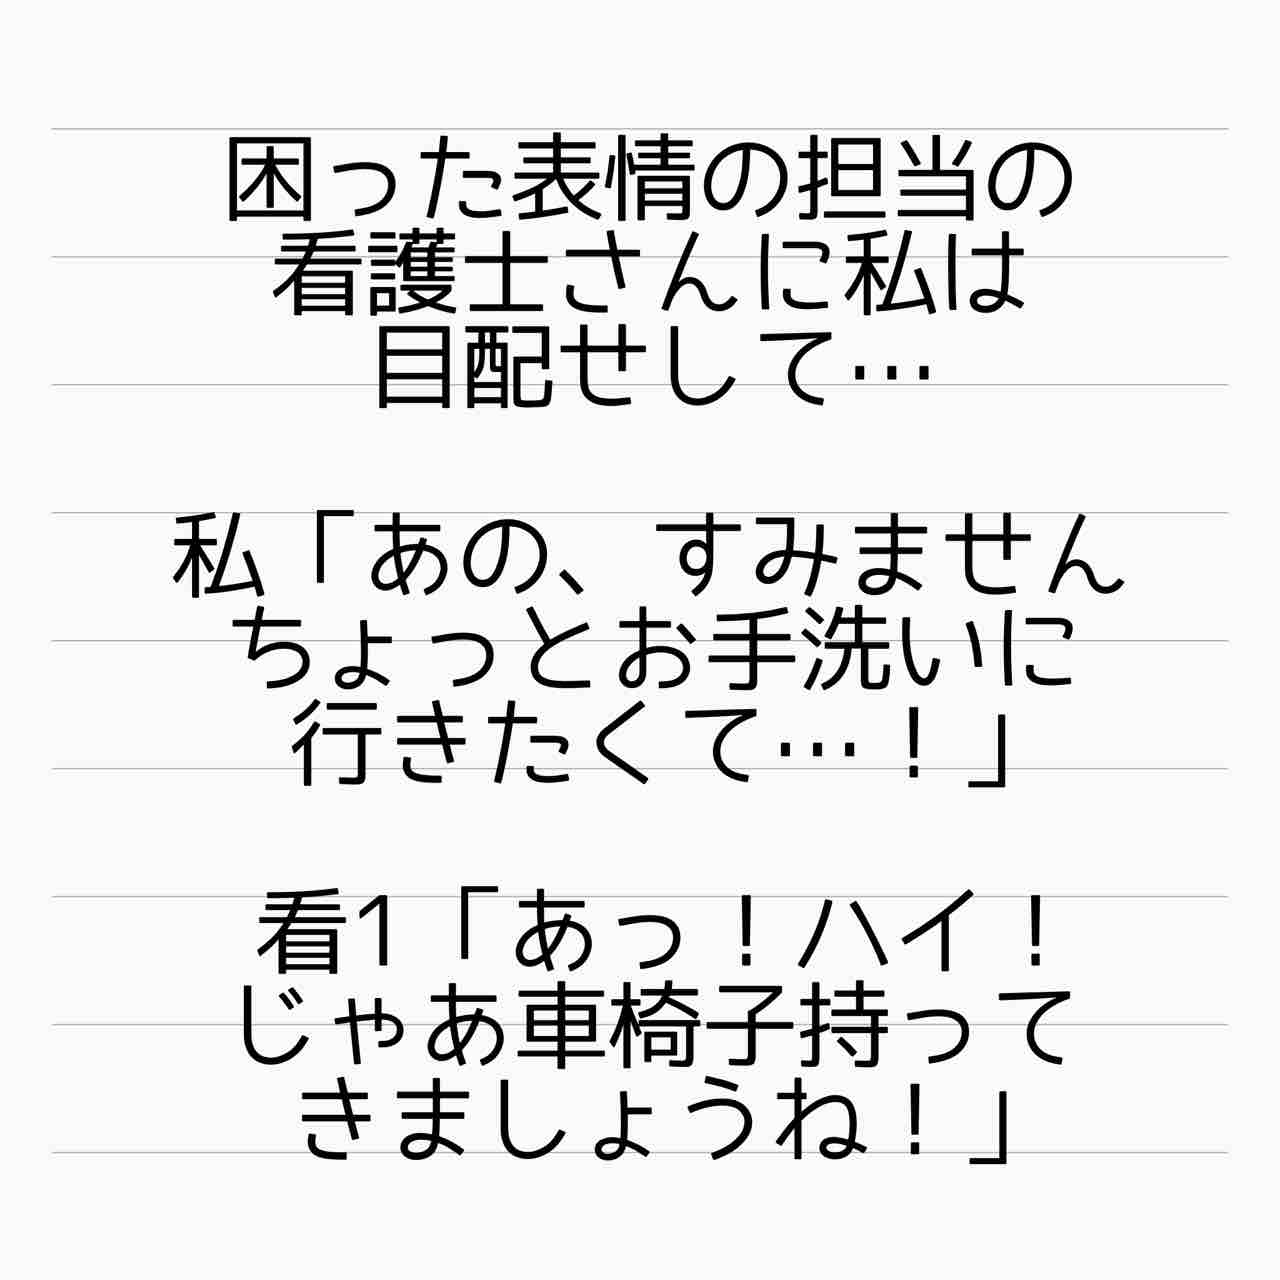 困った表情の担当の
看護士さんに私は
目配せして…
私「あの、すみません
ちょっとお手洗いに
行きたくて…！」
看1「あっ！ハイ！
じゃあ車椅子持って
きましょうね！」